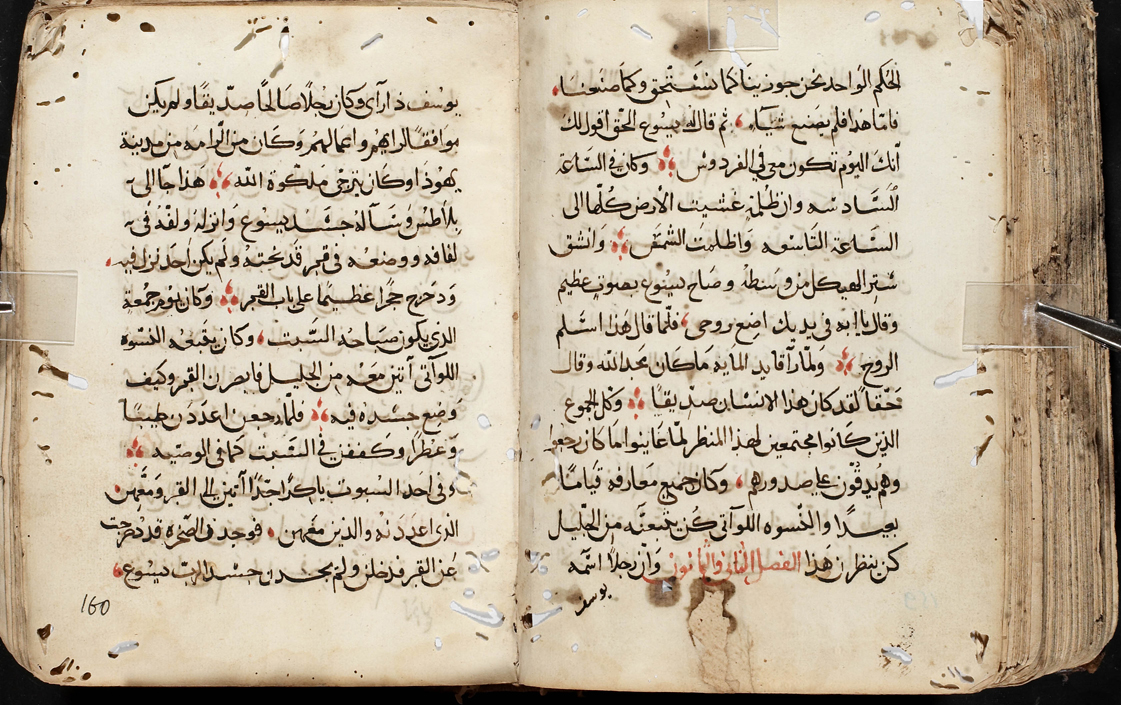 الحكم الواحد نحن جوزينا كما نستحق وكما صنعنا
فاما هذا فلم يصنع شياء ثم قال له يسوع الحق اقول لك
آنك اليوم تكون معي في الفردوس وكان في الساعة
السادسه وان ظلمة غشيت الارض كلها الى
الساعة التاسعه واظلمت الشمس وانشق
ستر الهيكل من وسطه وصاح يسوع بصوت عظيم
وقال يا ابه في يديك اضع روحي فلما قال هذا اسلم
الروح ولما رآ قايد المايه ما كان مجد الله وقال
حقاً لقد كان هذا الانسان صديقاً وكل الجموع
الذين كانوا مجتمعين لهذا المنظر لما عاينوا ما كان رجعوا
وهم يدقون على صدورهم وكان جميع معارفه قياماً
بعيداً والنسوه اللوآتي كن تبعنه من الجليل
كن ينظرن هذا الفصل الثاني والثمانون وان رجلاً اسمه
يوسف
يوسف ذا رآى وكان رجلاً صالحاً صديقاً ولم يكن
موافقاً لرايهم واعمالهم وكان من الرامه من مدينة
يهوذا وكان يترجى ملكوة الله هذا جا الى
بلاطس وساله جسد يسوع وانزله ولفه في
لفافه ووضعه في قبر قد نحته ولم يكن احد نزل فيه
ودحرج حجراً عظيماً على باب القبر وكان يوم جمعة
الذي يكون صباحه السبت وكان يتبعه النسوه
اللوآتي آتين معه من الجليل فابصرن القبر وكيف
وضع جسده فيه فلما رجعن اعددن طيباً
وعطراً وكففن في السبت كما في الوصيه
وفي احد السبوت باكراً جداً آتين الى القبر ومعهن
الذي اعددنه والذين معهن فوجدن الصخرة قد دحرجت
عن القبر فدخلن ولم يجدن جسد الرب يسوع
160